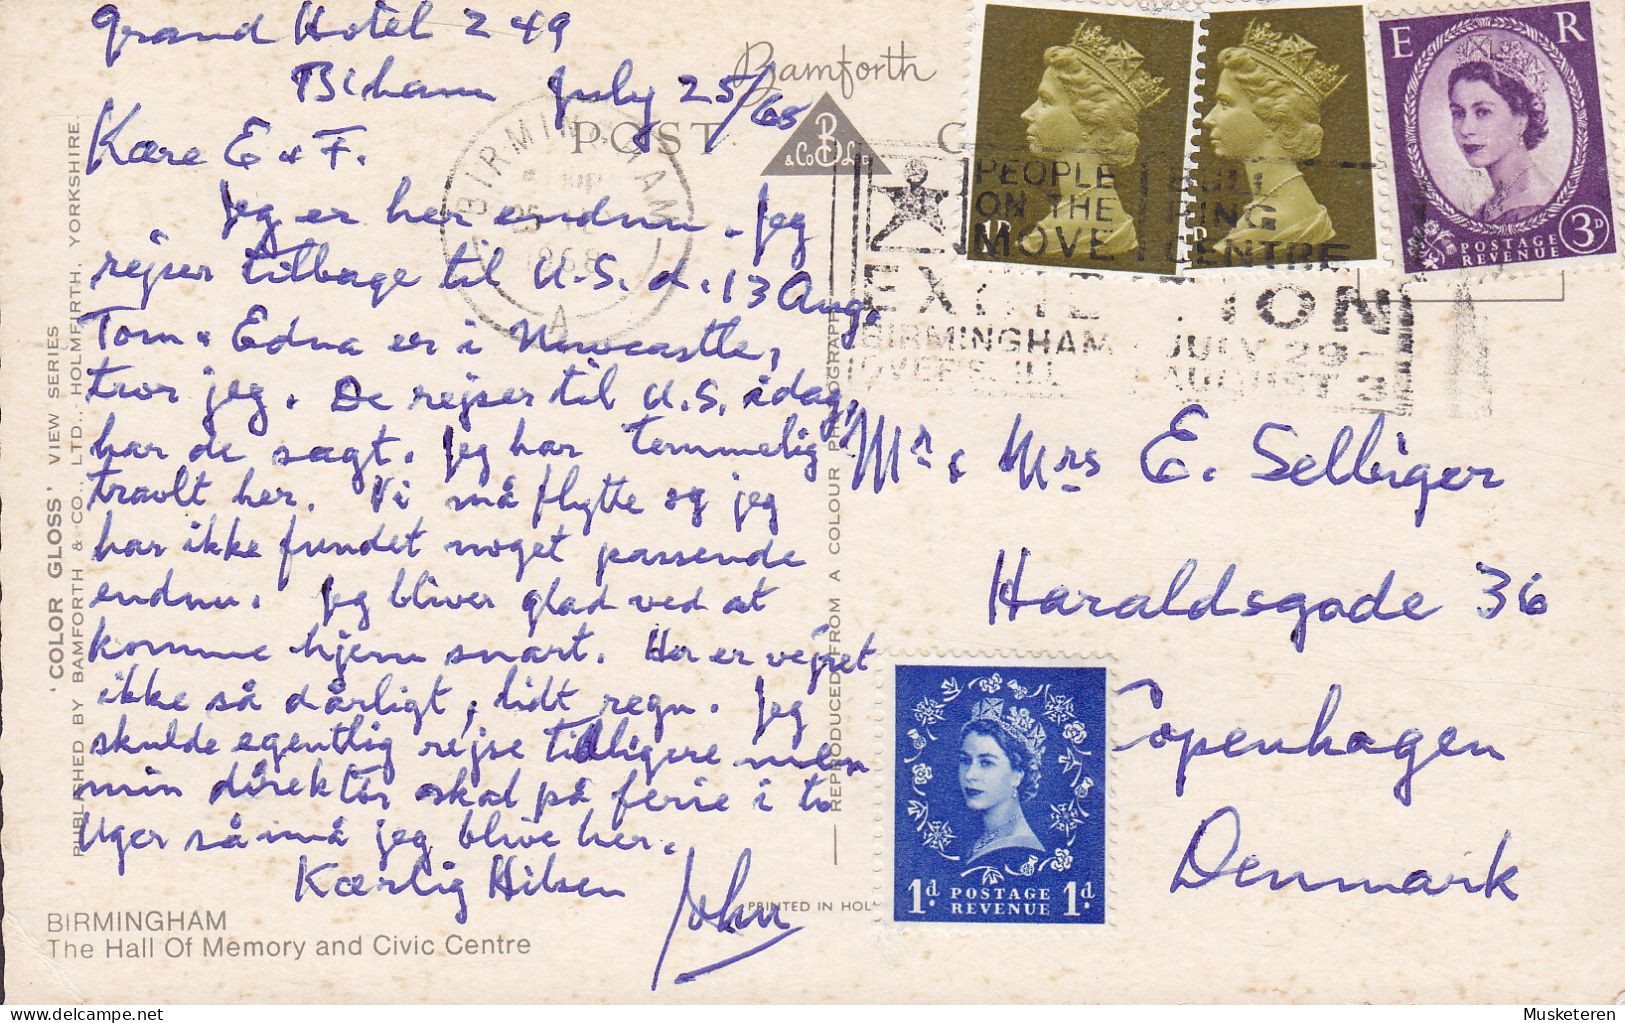 Grand Hotel 249
B'ham July 25/68
Kære E & F.
Jeg er her endnu. Jeg
rejser tilbage til U.S. d. 13 Aug.
Tom & Edna er i Newcastle,
tror jeg. De rejser til U.S. idag,
har de sagt. Jeg har temmelig
travlt her. Vi må flytte og jeg
har ikke fundet noget passende
endnu. Jeg bliver glad ved at
komme hjem snart. Her er vejret
ikke så dårligt, lidt regn. Jeg
skulde egentlig rejse tidligere men
min direktør skal på ferie i to
Uger så må jeg blive her.
Kærlig Hilsen
John
BIRMINGHAM
The Hall Of Memory and Civic Centre
'COLOR GLOSS' VIEW SERIES
PUBLISHED BY BAMFORTH & CO., LTD., HOLMFIRTH, YORKSHIRE.
Bamforth
POST C
B
& Co Ld
BIRMINGHAM
1968
A
PEOPLE
ON THE
MOVE
BULL
RING
CENTRE
BIRMINGHAM
JULY 29
AUGUST
E R
POSTAGE
REVENUE
3D
REPRODUCED FROM A COLOUR PHOTOGRAPH
PRINTED IN HOL
Mr & Mrs E. Selbiger
Haraldsgade 36
Copenhagen
Denmark
1d. POSTAGE REVENUE 1d.
delcampe.net
Musketeren